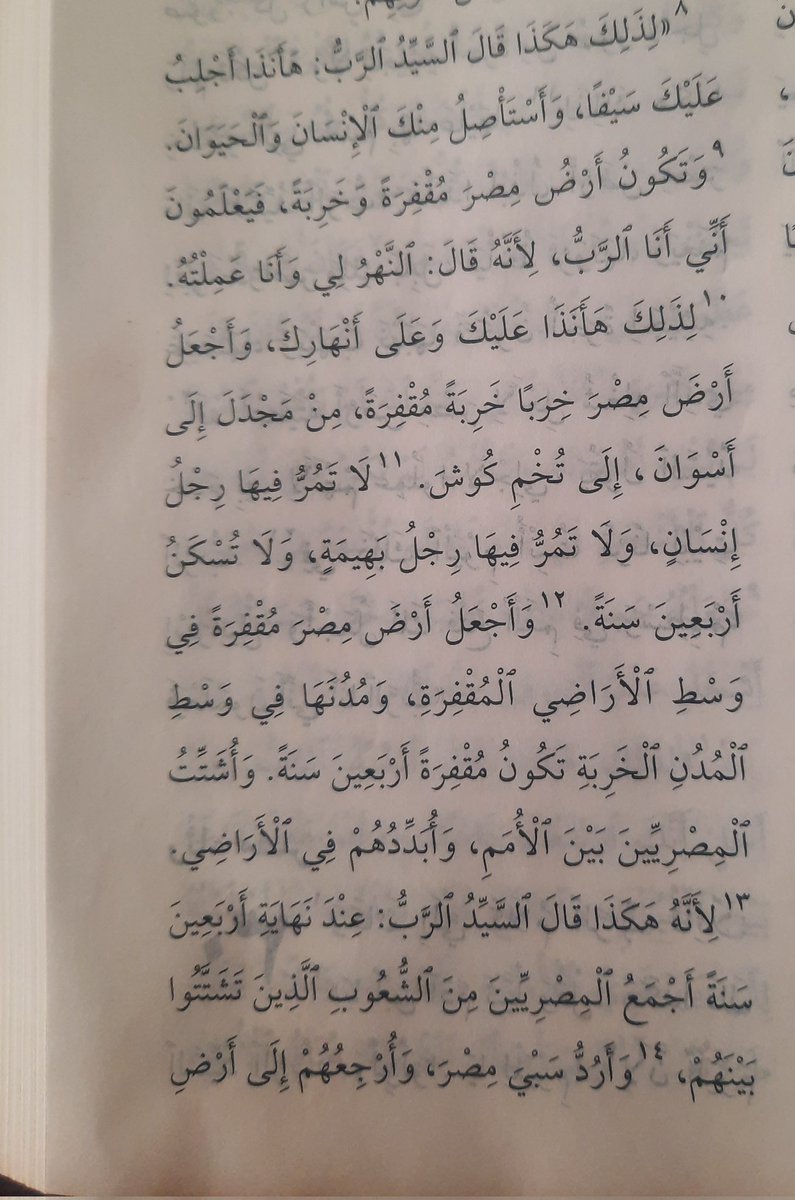 ٨«لِذَلِكَ هَكَذَا قَالَ ٱلسَّيِّدُ ٱلرَّبُّ: هَأَنَذَا أَجْلِبُ
عَلَيْكَ سَيْفًا، وَأَسْتَأْصِلُ مِنْكَ ٱلْإِنْسَانَ وَٱلْحَيَوَانَ.
٩وَتَكُونُ أَرْضُ مِصْرَ مُقْفِرَةً وَخَرِبَةً، فَيَعْلَمُونَ
أَنِّي أَنَا ٱلرَّبُّ، لِأَنَّهُ قَالَ: ٱلنَّهْرُ لِي وَأَنَا عَمِلْتُهُ.
١٠لِذَلِكَ هَأَنَذَا عَلَيْكَ وَعَلَى أَنْهَارِكَ، وَأَجْعَلُ
أَرْضَ مِصْرَ خِرَبًا خَرِبَةً مُقْفِرَةً، مِنْ مَجْدَلَ إِلَى
أَسْوَانَ، إِلَى تُخْمِ كُوشَ. ١١لَا تَمُرُّ فِيهَا رِجْلُ
إِنْسَانٍ، وَلَا تَمُرُّ فِيهَا رِجْلُ بَهِيمَةٍ، وَلَا تُسْكَنُ
أَرْبَعِينَ سَنَةً. ١٢وَأَجْعَلُ أَرْضَ مِصْرَ مُقْفِرَةً فِي
وَسْطِ ٱلْأَرَاضِي ٱلْمُقْفِرَةِ، وَمُدُنَهَا فِي وَسْطِ
ٱلْمُدُنِ ٱلْخَرِبَةِ تَكُونُ مُقْفِرَةً أَرْبَعِينَ سَنَةً. وَأُشَتِّتُ
ٱلْمِصْرِيِّينَ بَيْنَ ٱلْأُمَمِ، وَأُبَدِّدُهُمْ فِي ٱلْأَرَاضِي.
١٣لِأَنَّهُ هَكَذَا قَالَ ٱلسَّيِّدُ ٱلرَّبُّ: عِنْدَ نَهَايَةِ أَرْبَعِينَ
سَنَةً أَجْمَعُ ٱلْمِصْرِيِّينَ مِنَ ٱلشُّعُوبِ ٱلَّذِينَ تَشَتَّتُوا
بَيْنَهُمْ، ١٤وَأَرُدُّ سَبْيَ مِصْرَ، وَأُرْجِعُهُمْ إِلَى أَرْضِ